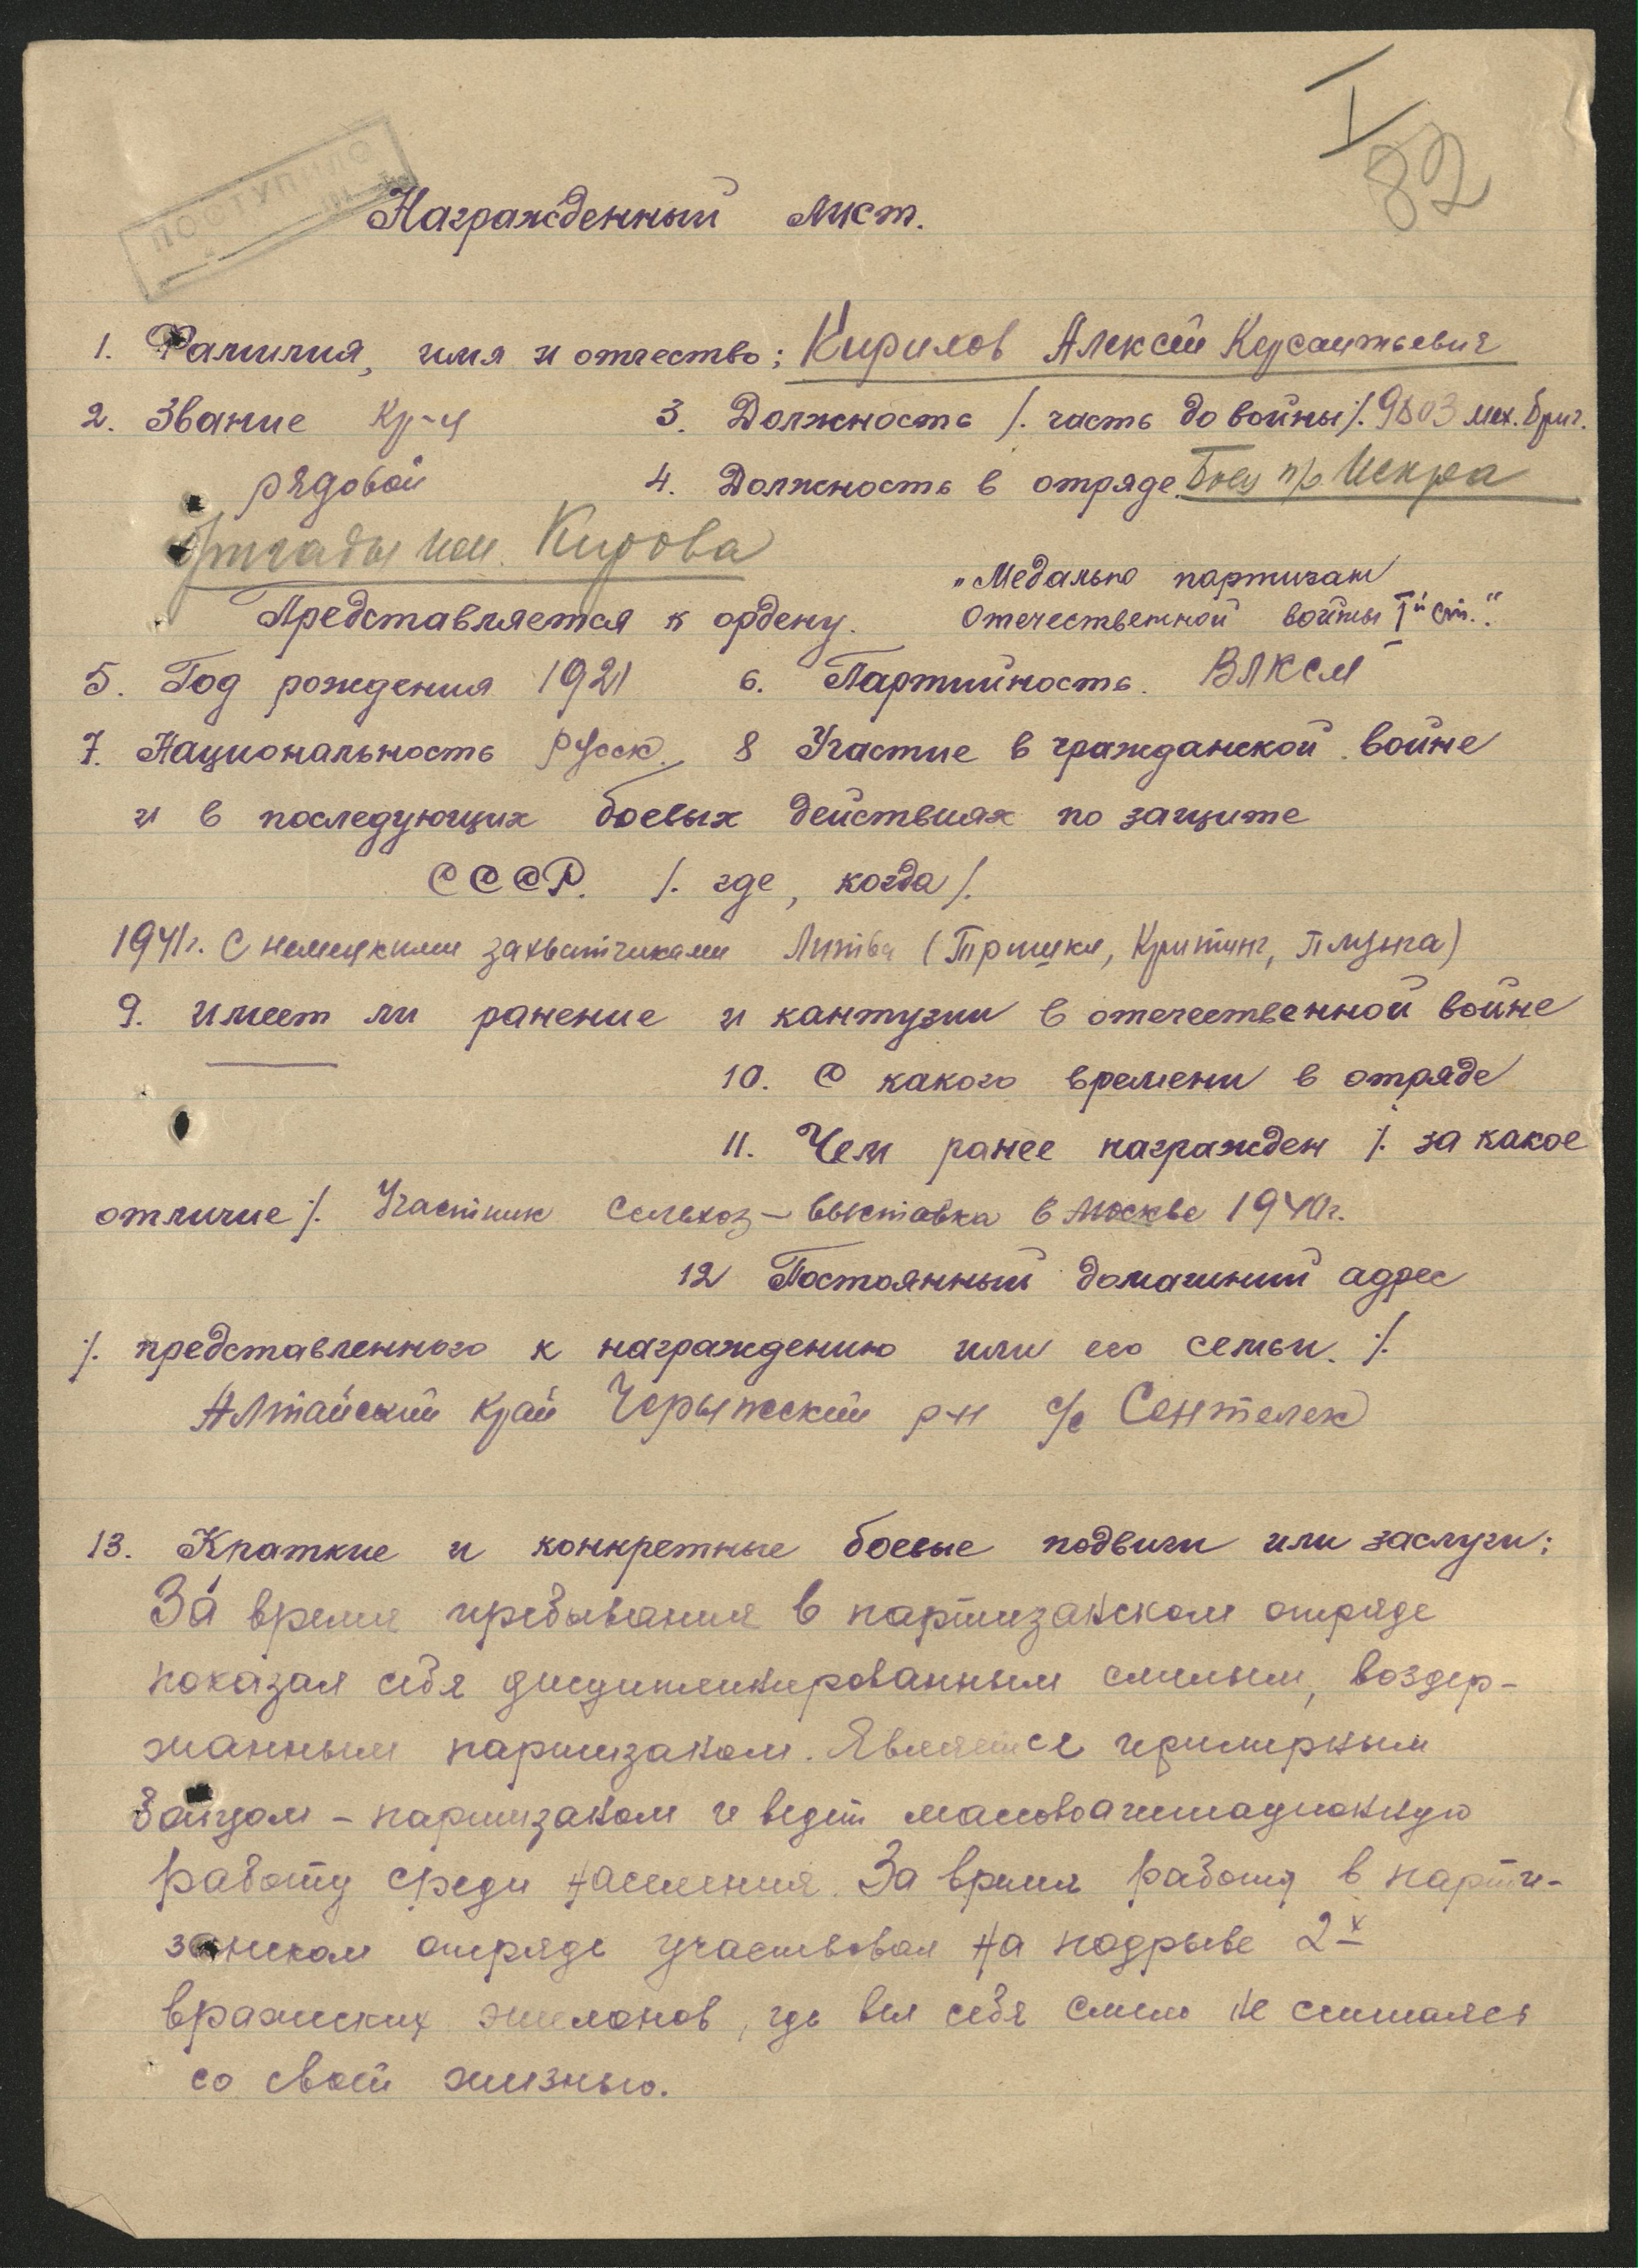 I
82
ПОСТУПИЛО
Награжденный лист.
1. Фамилия, имя и отчество: Кирилов Алексей
2. Звание кр-ц 3. Должность /. часть до войны /. 9803 мех. бриг.
рядовой 4. Должность в отряде. Боец п/о Искра
бригады им. Кирова
„Медалью партизан
Представляется к ордену. Отечественной войны I й ст.“
5. Год рождения 1921 6. Партийность. ВЛКСМ
7. Национальность Русск. 8 Участие в гражданской войне
и в последующих боевых действиях по защите
СССР. /. где, когда /.
1941г. С немецкими захватчиками Литва (Тришки, Критинг, Плунга)
9. имеет ли ранение и кантузии в отечественной войне
10. С какого времени в отряде
11. Чем ранее награжден /. за какое
отличие /. Участник Сельхоз - выставка в Москве 1940г.
12 Постоянный домашний адрес
/. представленного к награждению или его семьи. /.
Алтайский край Чарыжский р-н с/с Сентелек
13. Краткие и конкретные боевые подвиги или заслуги:
За время пребывания в партизанском отряде
показал себя дисциплинированным смелым, воздер-
жанным партизаном. Является примерным
бойцом - партизаном и ведет массовоагитационную
работу среди населения. За время работы в парти-
занском отряде участвовал на подрыве 2х
вражиских эшелонов, где вел себя смело не считаясь
со своей жизнью.